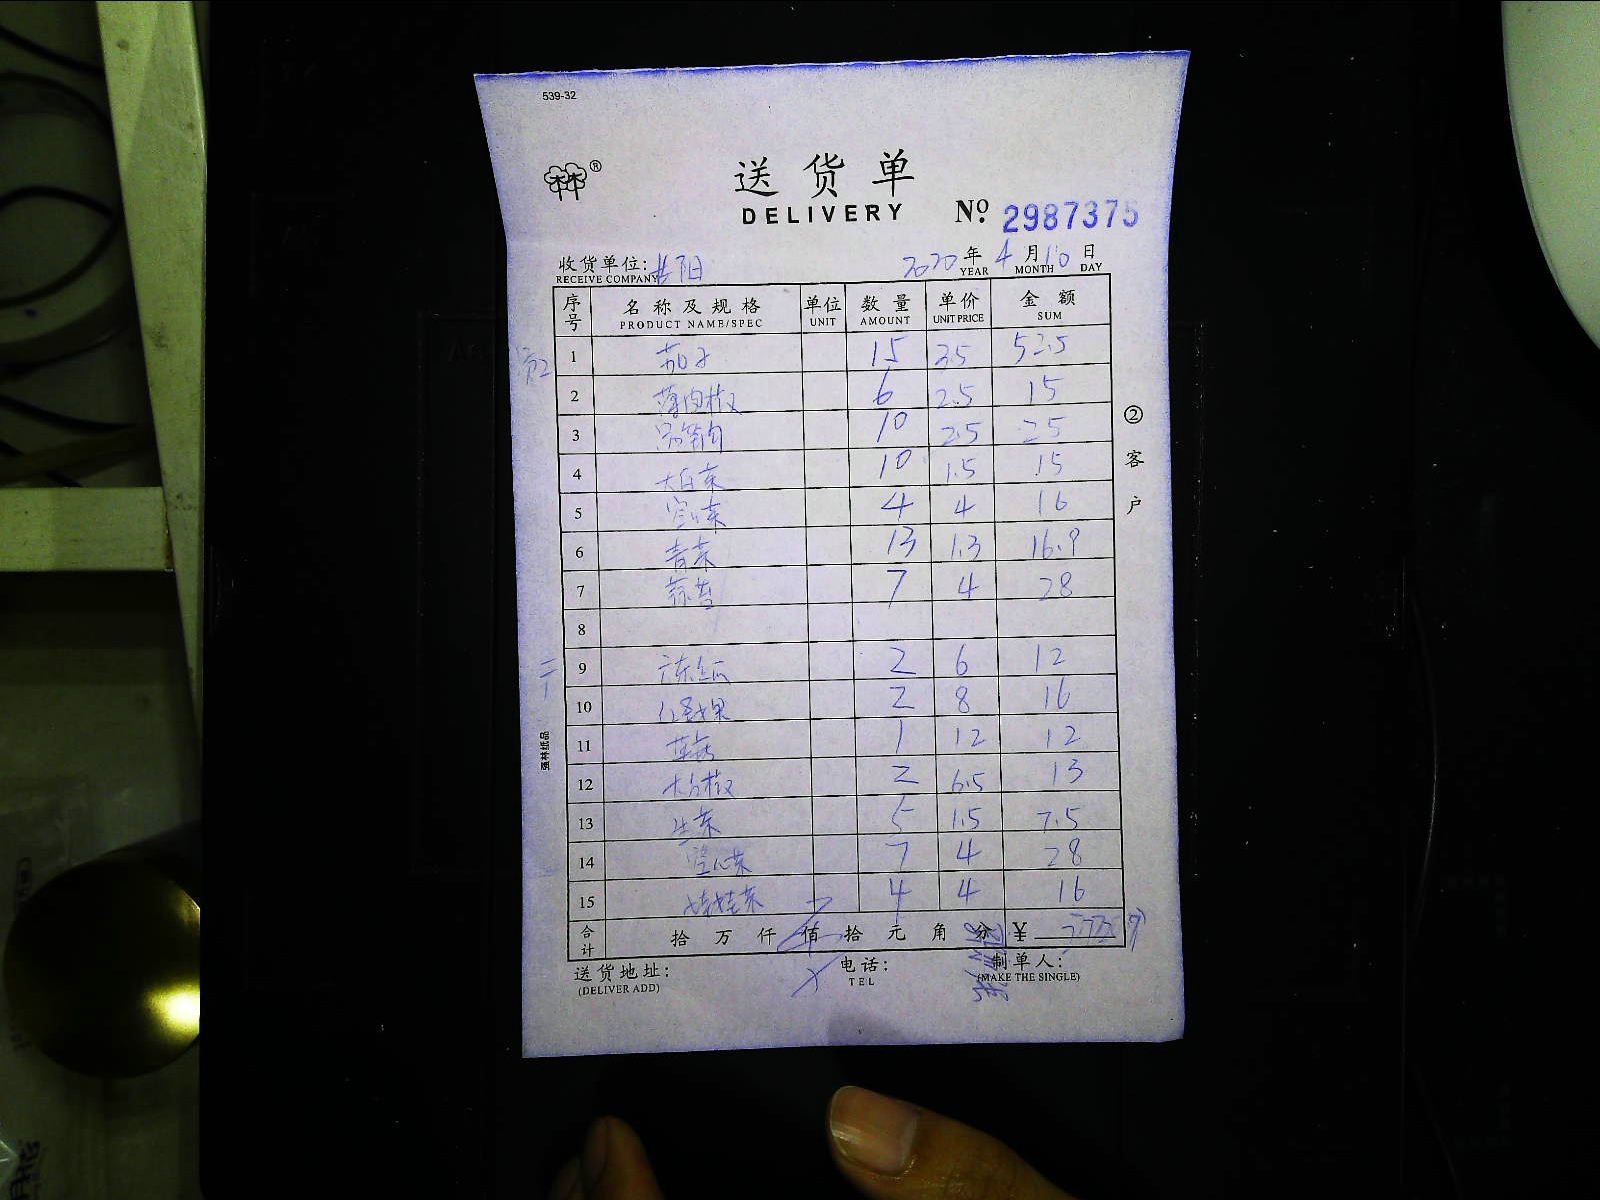 539-32
送货单
DELIVERY Nº. 2987375
收货单位: 2020年4月10日
RECEIVE COMPANY YEAR MONTH DAY
序号 名称及规格 单位 数量 单价 金额
PRODUCT NAME/SPEC UNIT AMOUNT UNIT PRICE SUM
1 茄子 15 3.5 52.5
2 薄肉椒 6 2.5 15
3 10 2.5 25
4 大白菜 10 1.5 15
5 空心菜 4 4 16
6 青菜 13 1.3 16.9
7 蒜苗 7 4 28
8
9 2 6 12
10 2 8 16
11 1 12 12
12 2 6.5 13
13 生菜 5 1.5 7.5
14 空心菜 7 4 28
15 娃娃菜 4 4 16
合计 拾 万 仟 佰 拾 元 角 分 ¥
送货地址: 电话: 制单人:
(DELIVER ADD) TEL (MAKE THE SINGLE)
②客户
强林纸品